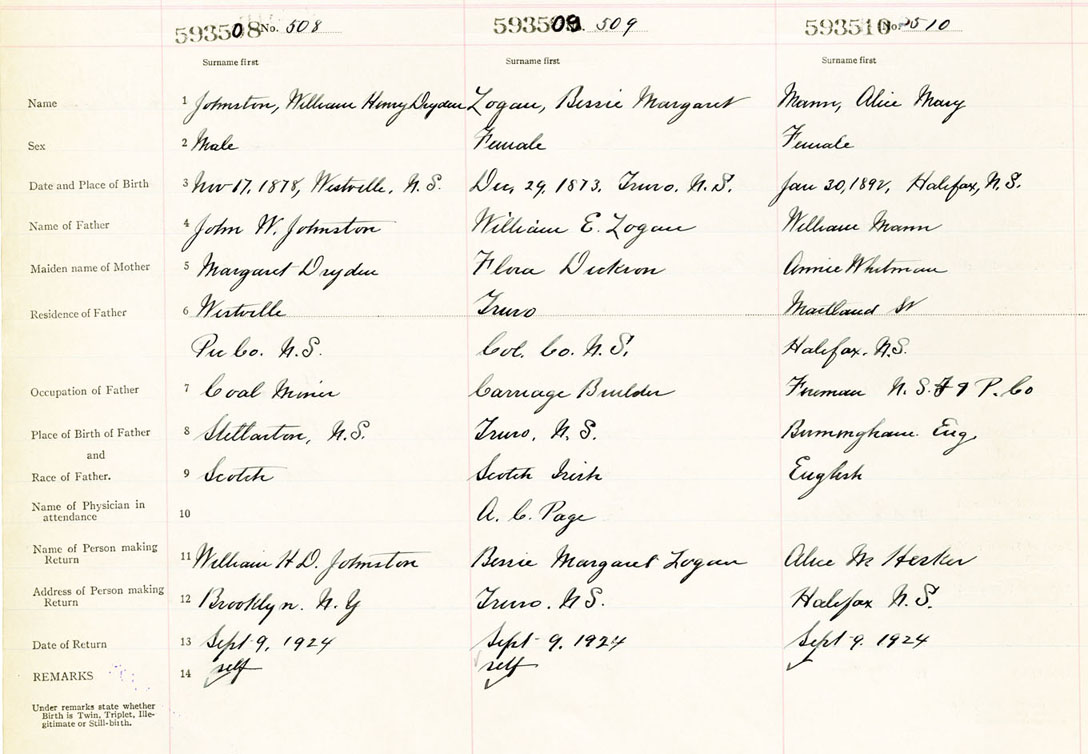 593508 No. 508 593509 509 593510 No. 510
Surname first Surname first Surname first
Name 1 Johnston, William Henry Dryden Logan, Bessie Margaret Mann, Alice Mary
Sex 2 Male Female Female
Date and Place of Birth 3 Nov 17, 1878, Westville, N.S. Dec, 29, 1873. Truro. N.S. Jan 30, 1892, Halifax, N.S.
Name of Father 4 John W. Johnston William E. Logan William Mann
Maiden name of Mother 5 Margaret Dryden Flora Dickson Annie Whitman
Residence of Father 6 Westville Truro Maitland St
Pic Co. N.S. Col. Co. N.S. Halifax. N.S.
Occupation of Father 7 Coal Miner Carriage Builder Foreman N.S. & P. Co
Place of Birth of Father 8 Stellarton, N.S. Truro, N.S. Birmingham. Eng.
and
Race of Father. 9 Scotch Scotch Irish English
Name of Physician in
attendance 10 A. C. Page
Name of Person making
Return 11 William H D. Johnston Bessie Margaret Logan Alice M
Address of Person making
Return 12 Brooklyn. N.Y Truro. N.S. Halifax N.S.
Date of Return 13 Sept 9, 1924 Sept 9, 1924 Sept 9. 1924
REMARKS 14 self self
Under remarks state whether
Birth is Twin, Triplet, Ille-
gitimate or Still-birth.